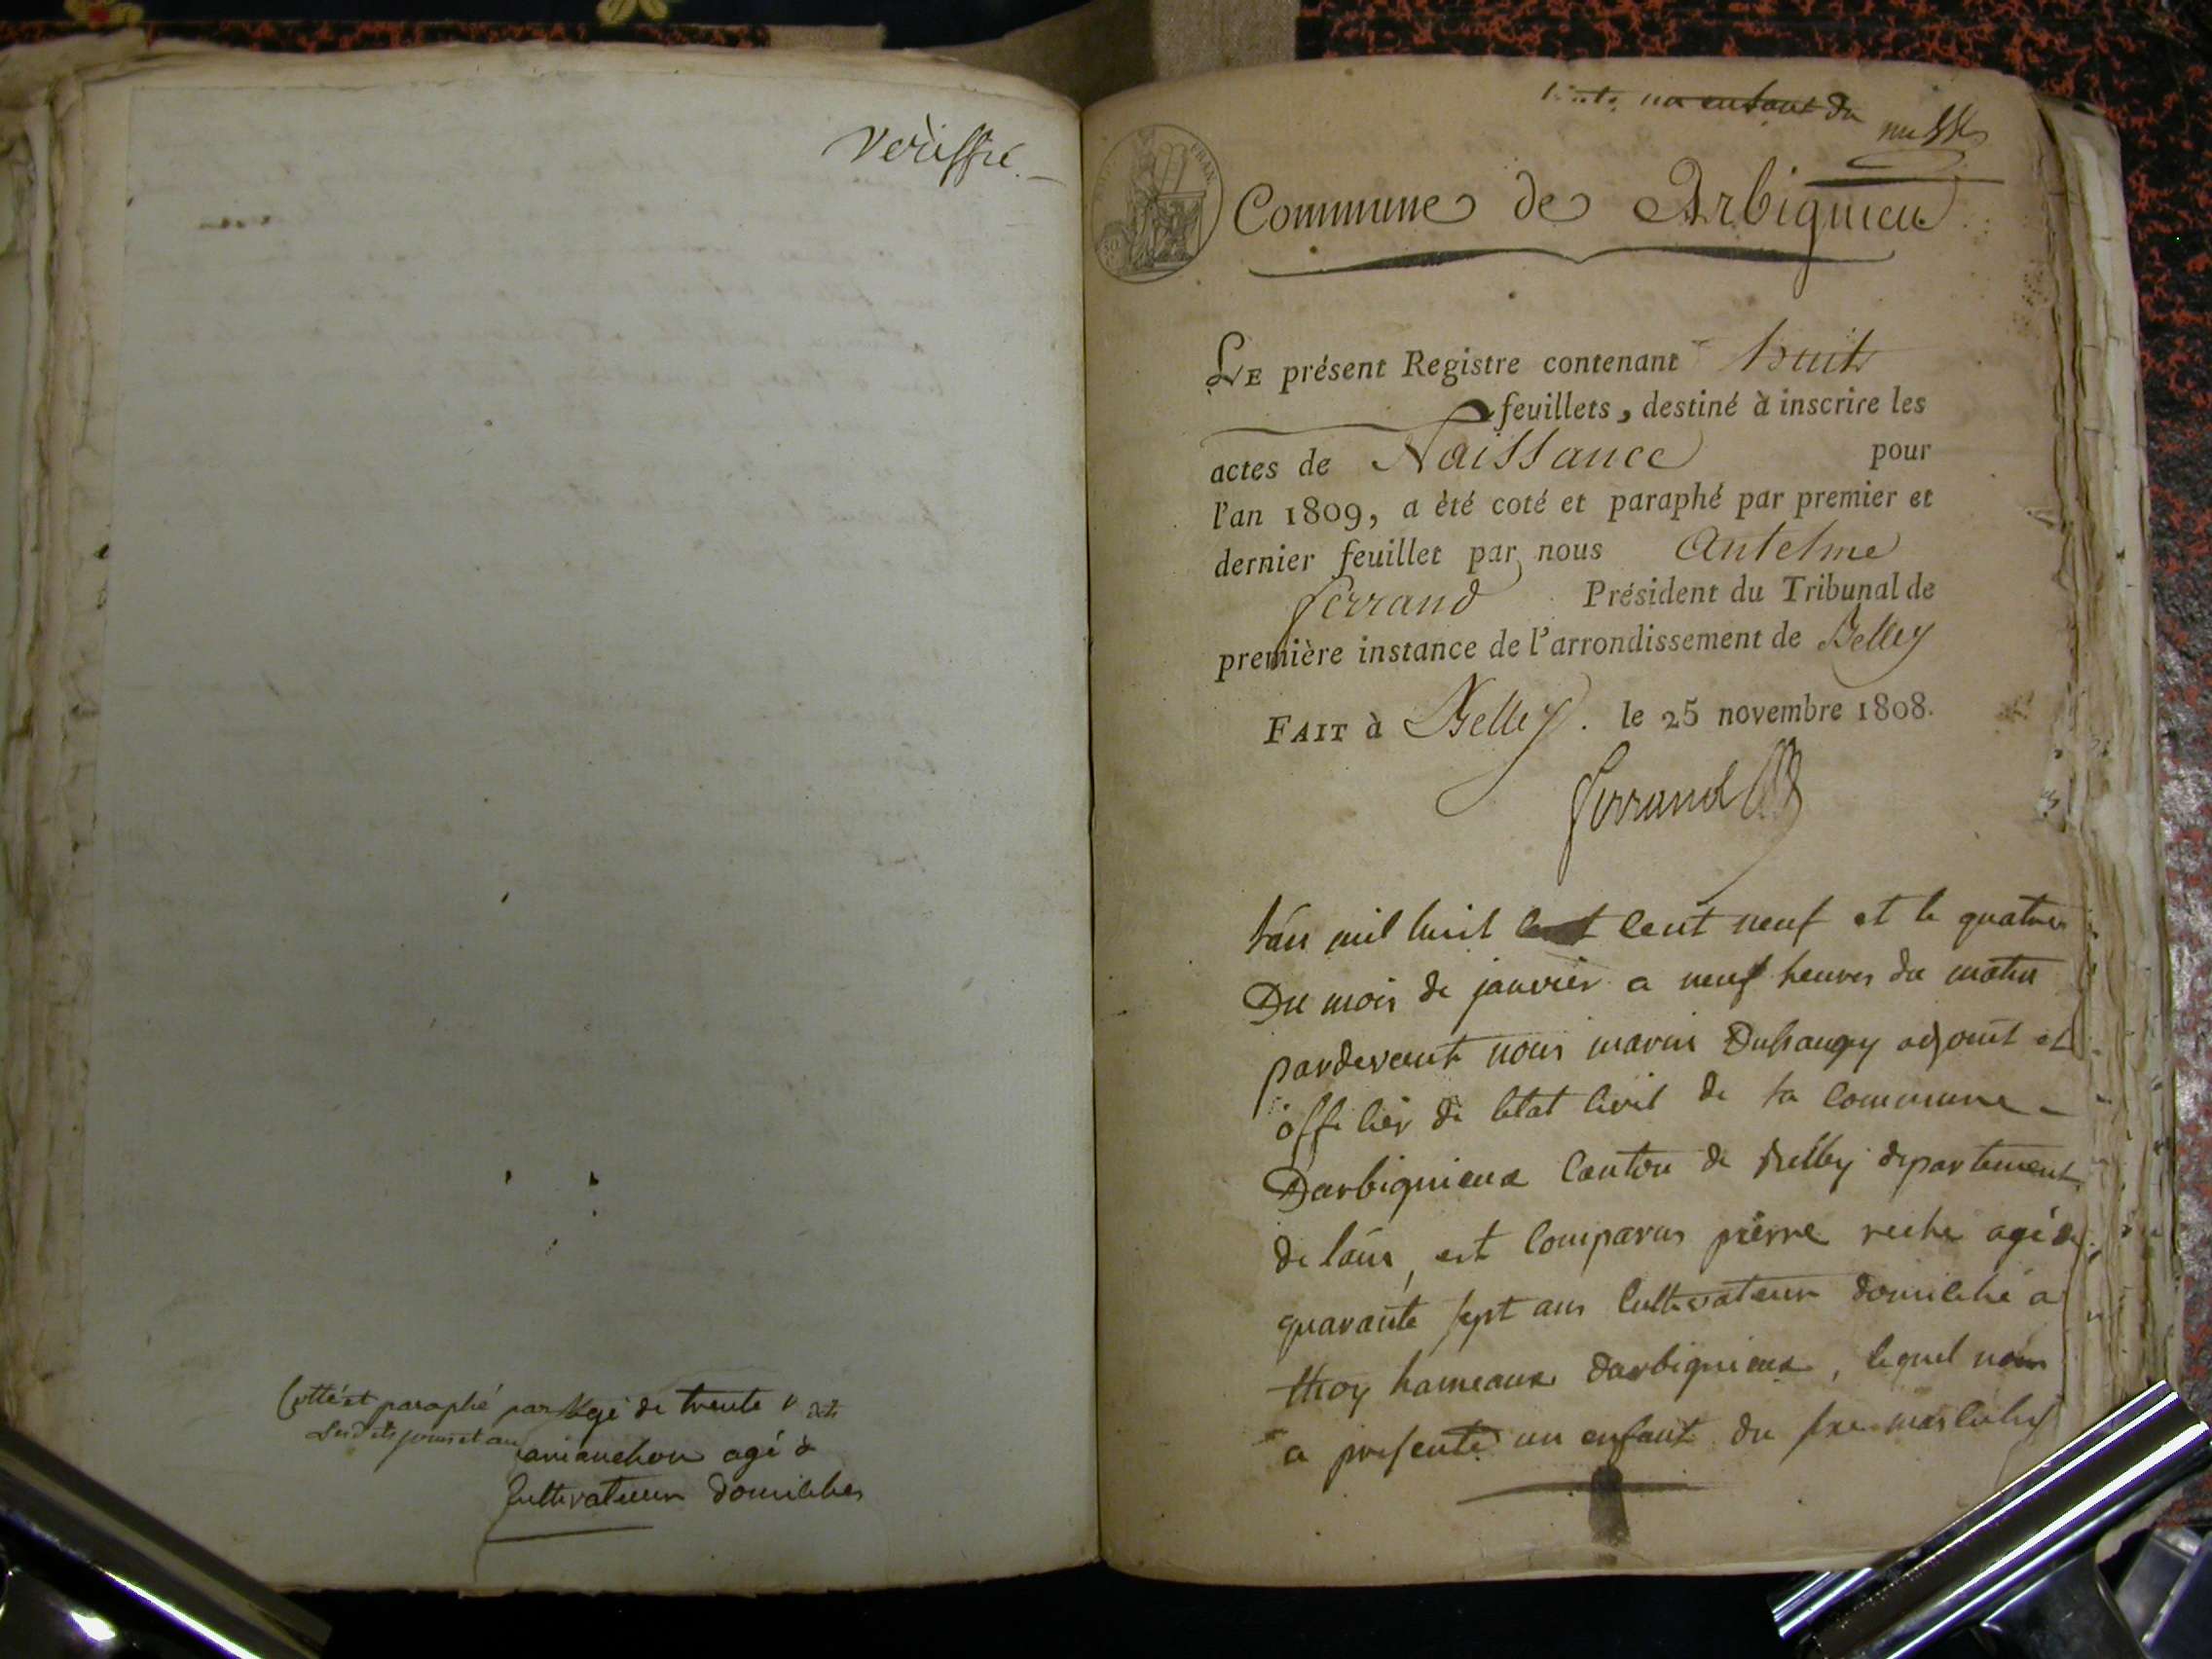 Veriffié.
Cotté et paraphé par
agé de trente
agé d
Cultivateur domiciliés
un enfant du
Commune de Arbignieu
LE présent Registre contenant huit
feuillets, destiné à inscrire les
actes de Naissance pour
l'an 1809, a été coté et paraphé par premier et
dernier feuillet par nous Antelme
ferrand Président du Tribunal de
première instance de l'arrondissement de Belley
FAIT à Belley. le 25 novembre 1808.
ferrand
lan mil huit cent neuf et le quatre
Du mois de janvier a neuf heures du matin
pardevant nous marin adjoint et
officier de letat civil de la commune
Darbignieux Canton de Belley departement
de lain, est comparus pierre agé de
quarante sept ans Cultivateur domicilié a
thoy hameaux darbignieux, lequel nous
a presenté un enfant du sexe masculin